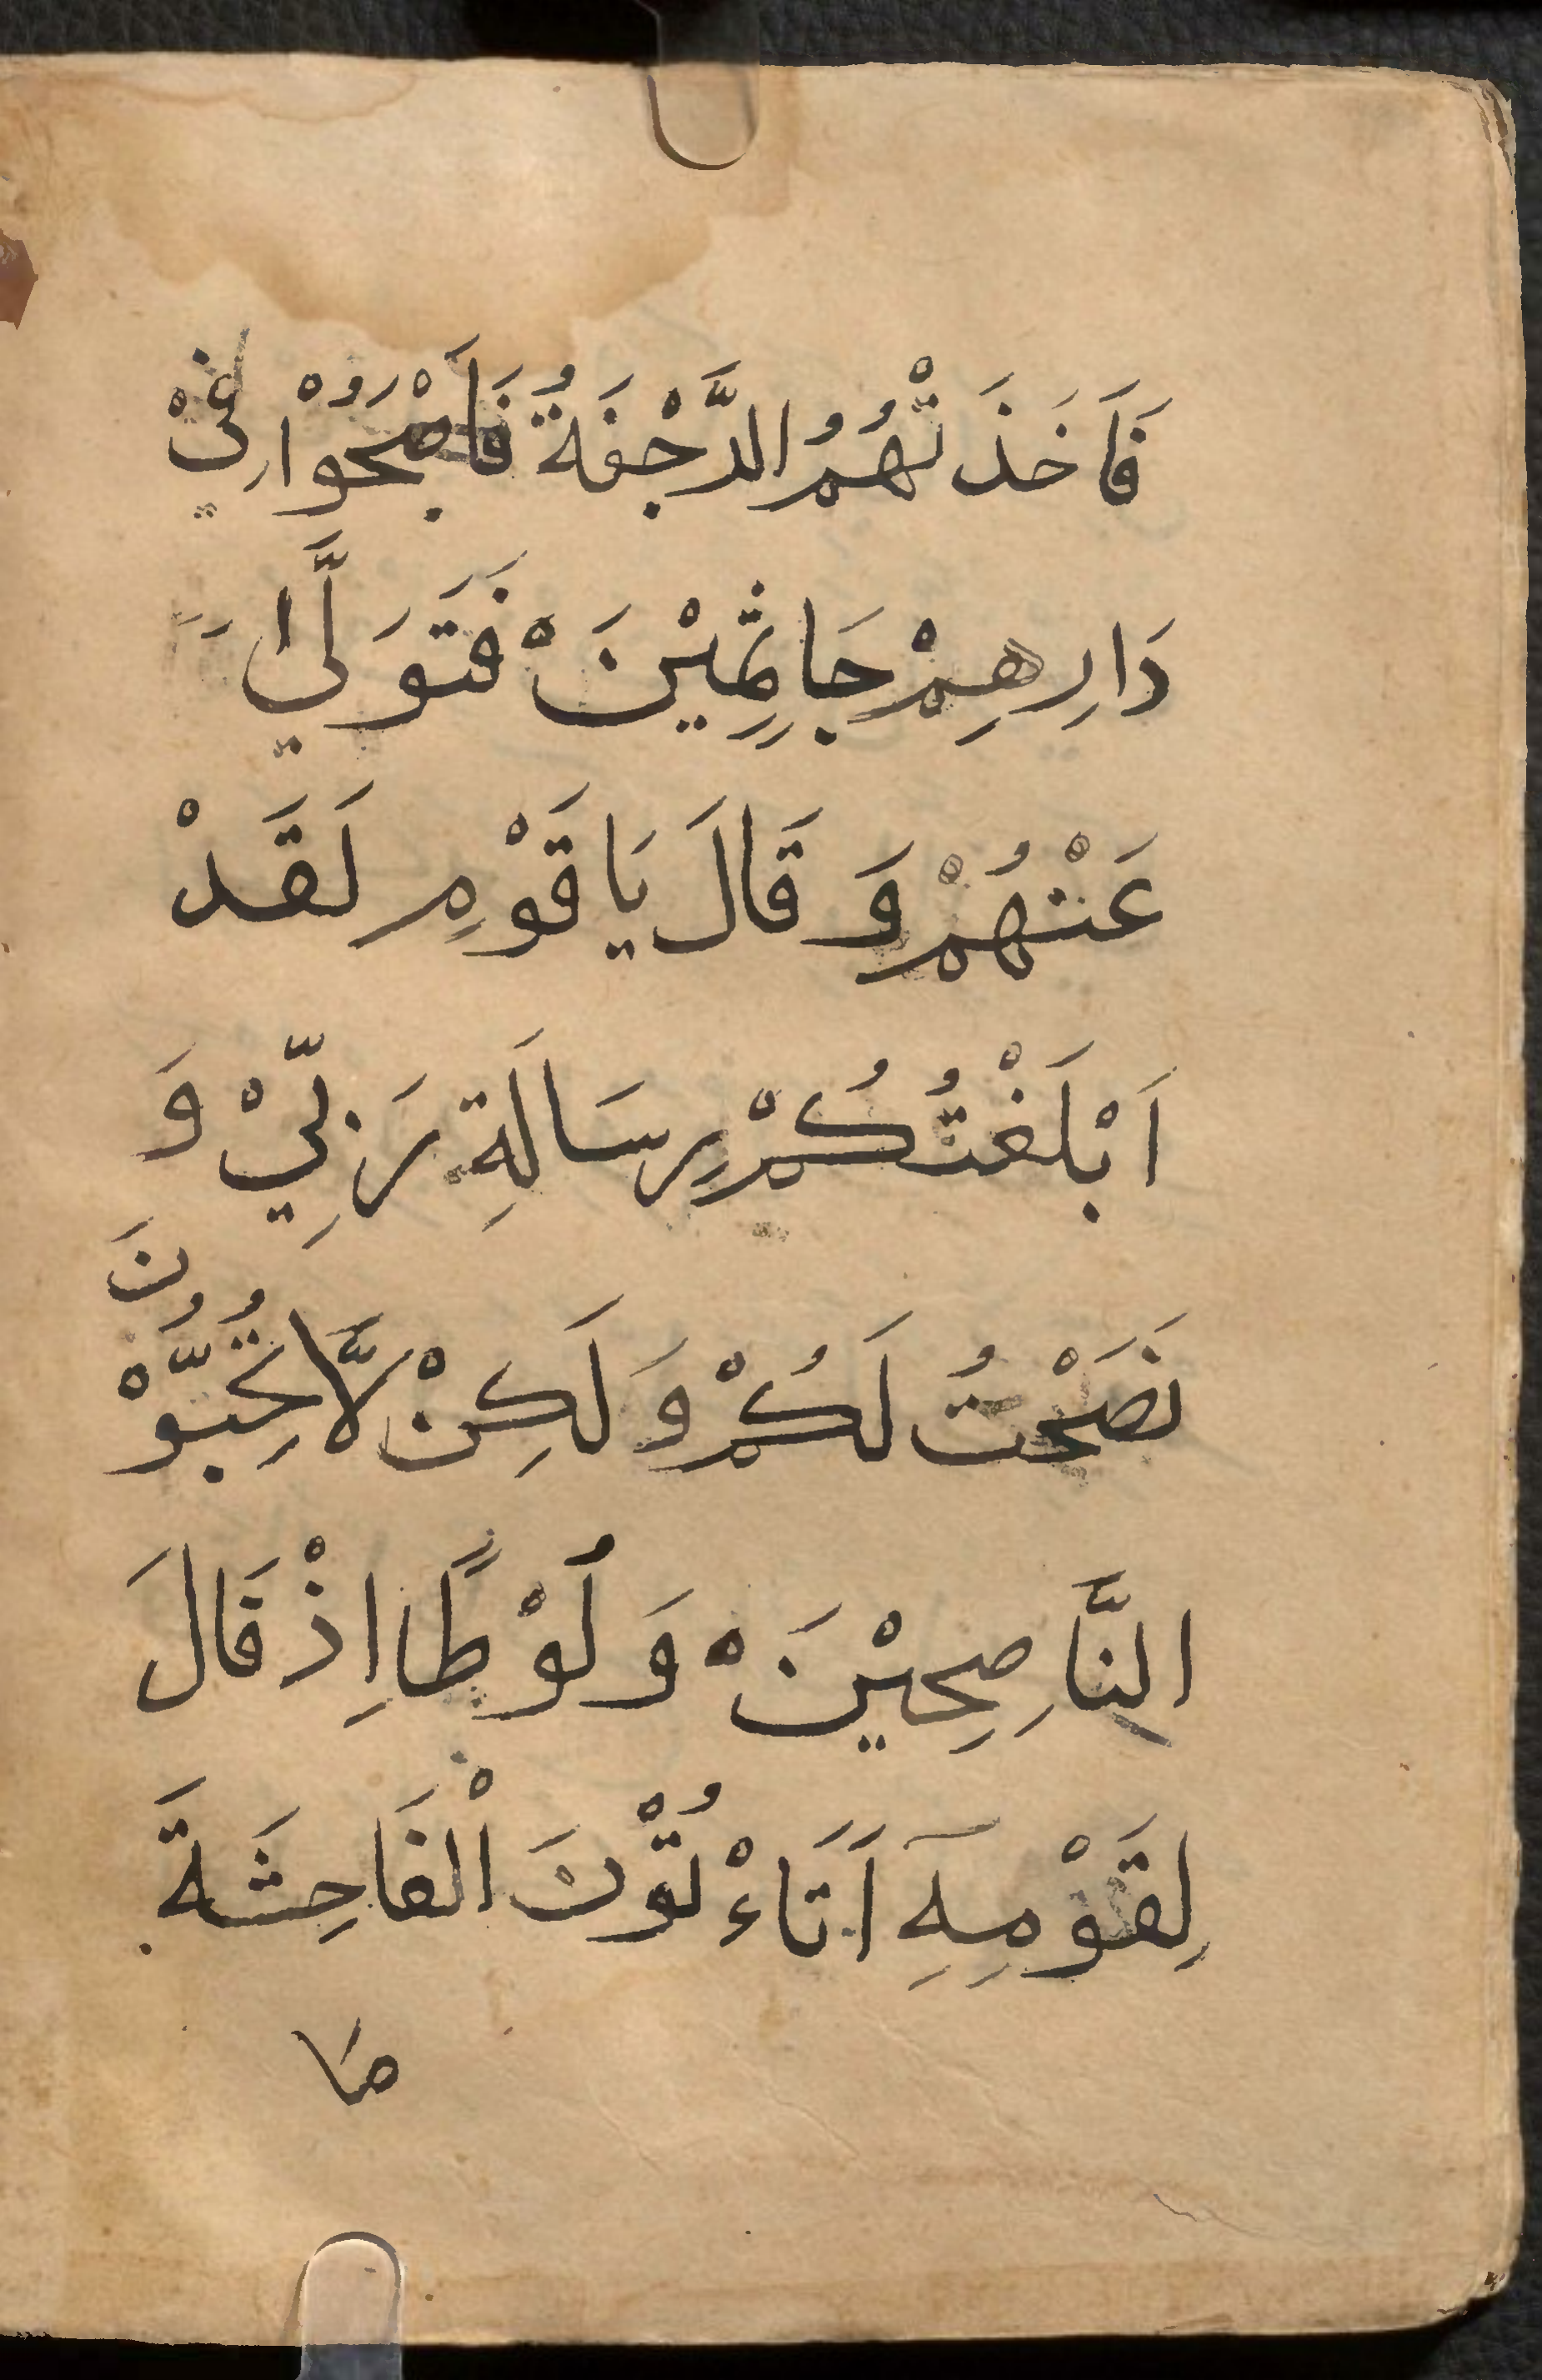 فَاَخَذَتْهُمُ الرَّجْفَةُ فَاَصْبَحُوْا فِيْ
دَارِهِمْ جَاثِمِيْنَ ه فَتَوَلَّي
عَنْهُمْ وَقَالَ يَا قَوْمِ لَقَدْ
اَبْلَغْتُكُمْ رِسَالَةِ رَبِّيْ وَ
نَصَحْتُ لَكُمْ وَلَكِنْ لَّا تُحِبُّوْنَ
النَّاصِحِيْنَ ه وَلُوْطًا اِذْ قَالَ
لِقَوْمِهِٓ اَتَاءْتُوْنَ الْفَاحِشَةَ
مَا